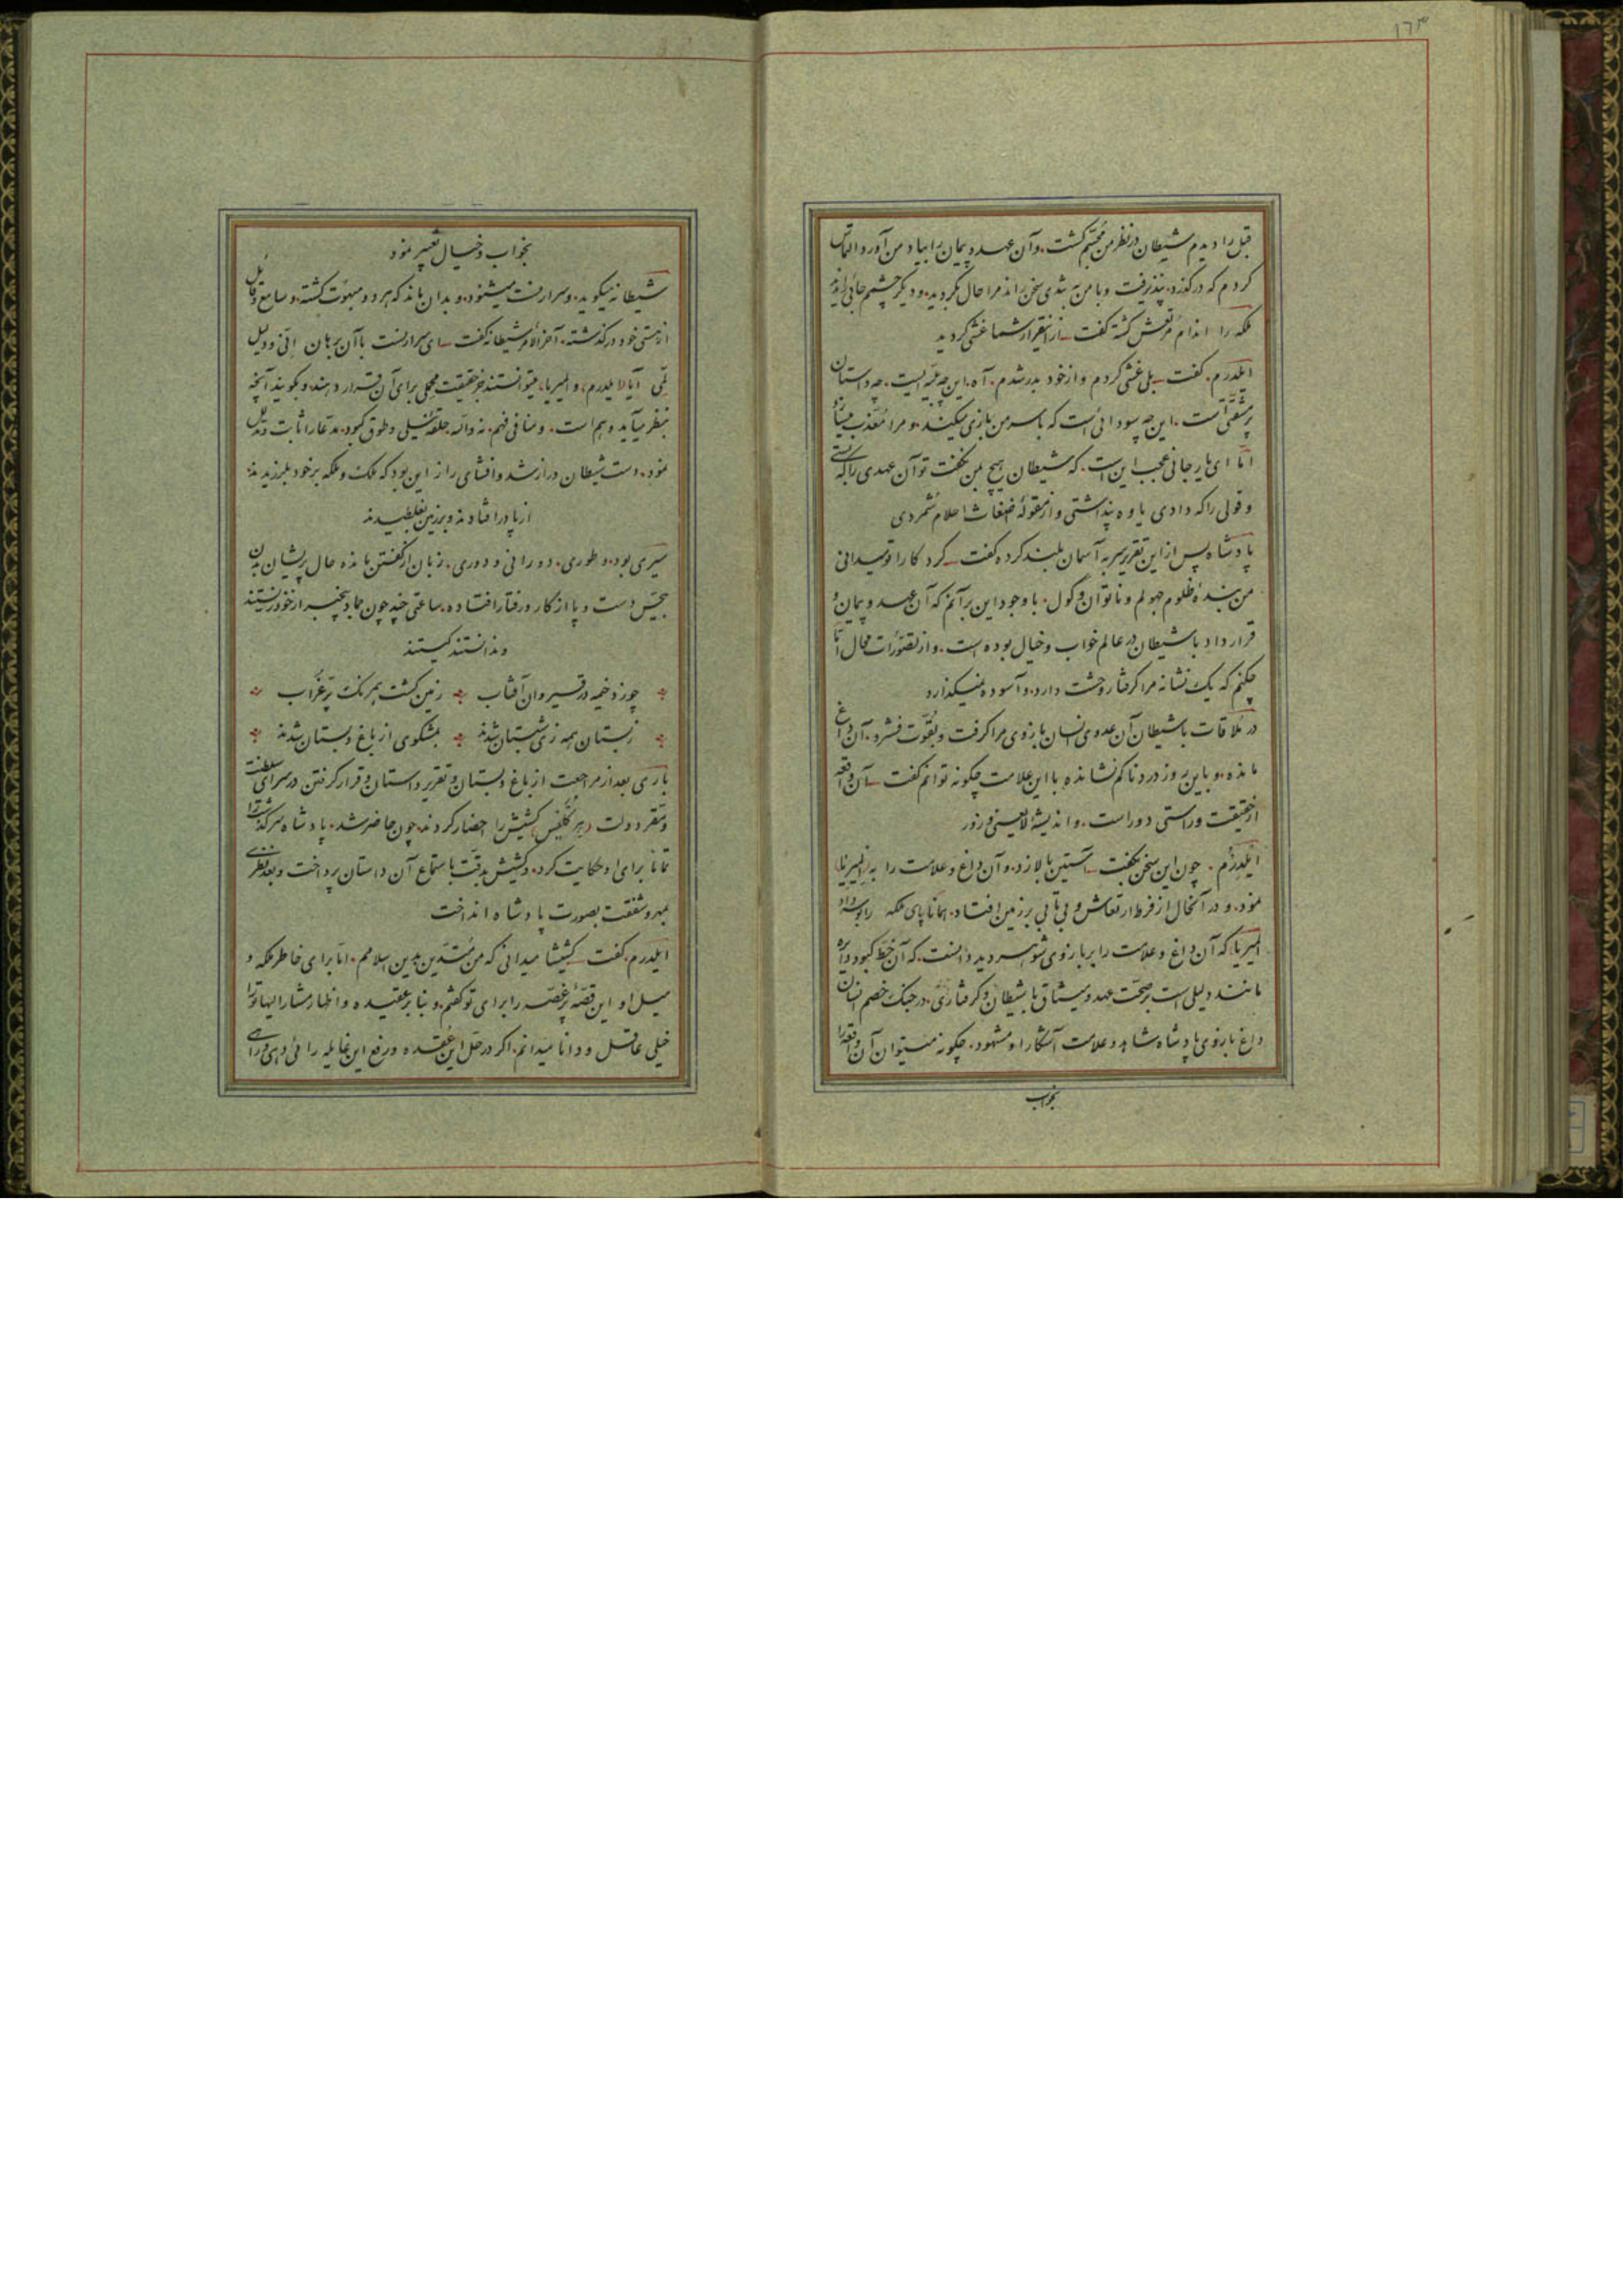 ۱۷۳
قبل را دیدم شیطان در نظر من مجسّم گشت. و آن عهد و پیمان را بیاد من آورد التماس
کردم که درگذرد. نپذیرفت و با من به تندی سخن راند مرا حال بگردید. و دیگر چشم جائی را ندید
ملکه را اندام مرتعش گشته گفت از این قرار شما غشی کردید
ایلدرم. گفت بلی غشی کردم و از خود بدر شدم. آه. این چه بلیّه ایست. چه داستان
پر مشقّتی است. این چه سودائی است که با سر من بازی میکند. و مرا معذّب میسازد
امّا ای یار جانی عجب این است. که شیطان هیچ بمن نگفت تو آن عهدی را که بستی
و قولی را که دادی یاوه پنداشتی و از مقوله اضغاث احلام شمردی
پادشاه پس از این تقریر سر به آسمان بلند کرده گفت کردکارا تو میدانی
من بنده ظلوم جهولم و ناتوان و گول. با وجود این بر آنم که آن عهد و پیمان و
قرارداد با شیطان در عالم خواب و خیال بوده است. و از تصوّرات محال امّا
چکنم که یک نشانه مرا گرفتار وحشت دارد. و آسوده نمیگذارد
در ملاقات با شیطان آن عدوی انسان بازوی مرا گرفت و بقوّت فشرد. آن داغ
مانده. و باین روز دردناکم نشانده با این علامت چگونه توانم گفت آن واقعه
از حقیقت و راستی دور است. و اندیشه لایعنی و زور
ایلدرم. چون این سخن بگفت آستین بالا زد. و آن داغ و علامت را به المیریا
نمود. و در آنحال از فرط ارتعاش و بی تابی بر زمین افتاد. همانا پای ملکه را بوسه داد
المیریا. که آن داغ و علامت را بر بازوی شوهر دید دانست. که آن خط کبود دایره
مانند دلیلی است بر صحّت عهد و میثاق با شیطان و گرفتاری. در چنگ خصم انسان
داغ بازوی پادشاه شاهد و علامت آشکار او مشهود. چگونه میتوان آن واقعه را
بخواب
بخواب و خیال تعبیر نمود
شیطانه میگوید. و سرارنست میشنود. و بدان ماند که هر دو مبهوت گشته. و سامع و قائل
از هستی خود درگذشته. آخر الامر شیطانه گفت ای سرارنست با آن برهان اِنّی و دلیل
لِمّی آیا ایلدرم. و المیریا. میتوانستند جز حقیقت محلی برای آن قرار دهند. و بگویند آنچه
بنظر میآید وهم است. و منافی فهم. نه والله حلقه نیلی و طوق کبود. مدّعا را ثابت و مدلل
نمود. دست شیطان دراز شد و افشای راز این بود که ملک و ملکه بر خود بلرزیدند
از پا درافتادند و بر زمین بغلطیدند
سیری بود. و طوری. دورانی و دوری. زبان از گفتن مانده حال پریشان بدن
بیحس دست و پا از کار و رفتار افتاده. ساعتی چند چون جماد بیخبر از خود زیستند
و ندانستند کیستند
چو زد خیمه در قیروان آفتاب زمین گشت همرنگ پرّ غراب
ز بستان همه زی شبستان شدند بمشکوی از باغ و بستان شدند
باری بعد از مراجعت از باغ و بستان و تقریر داستان و قرار گرفتن در سرای سلطنت
و مقرّ دولت کشیش را احضار کردند. چون حاضر شد. پادشاه سرگذشت را
تماماً برای او حکایت کرد. و کشیش بدقّت باستماع آن داستان پرداخت و بعد نظری
بمهر و شفقت بصورت پادشاه انداخت
ایلدرم. گفت کشیشا میدانی که من متدیّن بدین اسلامم. امّا برای خاطر ملکه و
میل او این قصّه پر غصّه را برای تو گفتم. و بنا بر عقیده و اظهار مشار الیها تو را
خیلی عاقل و دانا میدانم. اگر در حل این عقده و رفع این غایله رائی دهی و رای